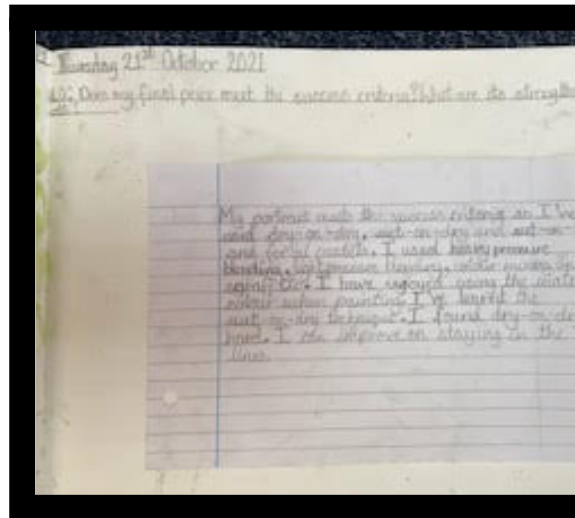 Thursday 21st October 2021
LO: Does my final peice meet the success criteria? What are its strengths
My portrait meets the success criteria as I've
used dry-on-dry, wet-on-dry and wet-on-
and pastels. I used heavy pressure
blending, light pressure blending, colour mixing
I have enjoyed using the water
colour when painting. I've learnt the
wet-on-dry technique. I found dry-on-dr
hard. I can improve on staying in the
lines.